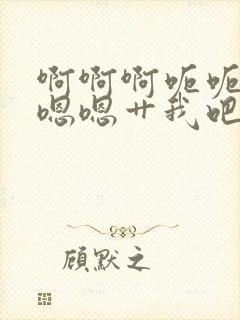 啊啊啊呃呃
嗯嗯艹我吧
顾默之